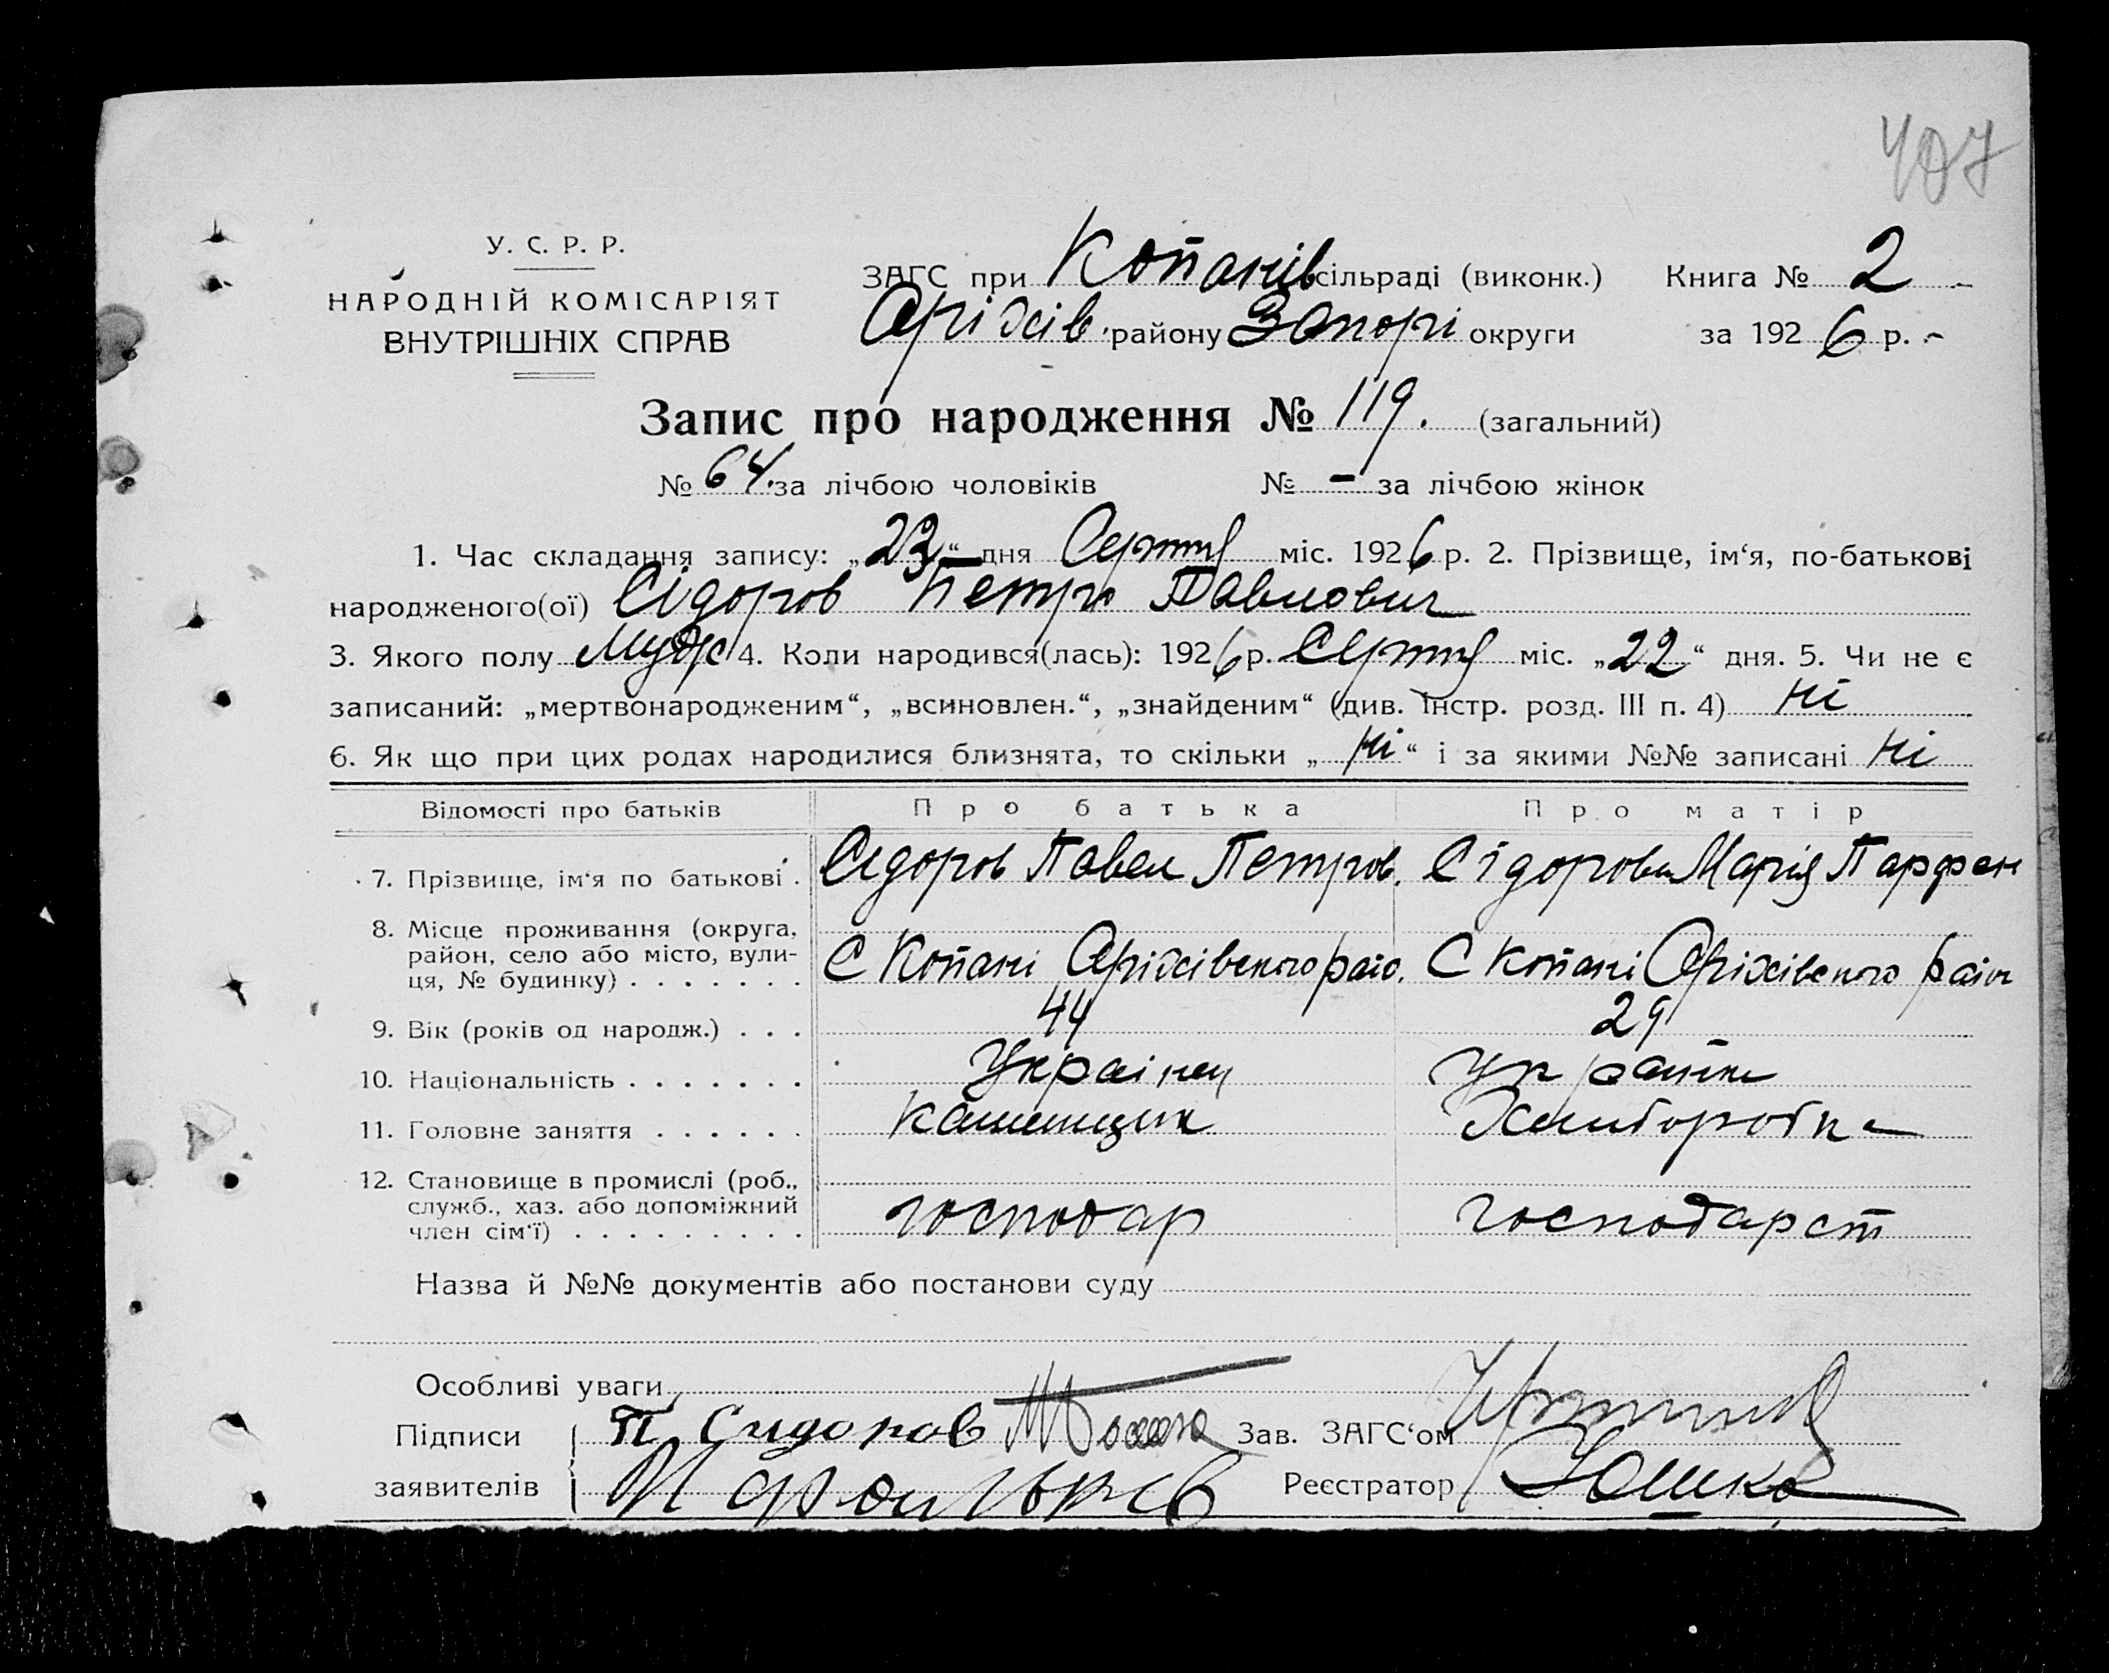 407
У. С. Р. Р.
НАРОДНІЙ КОМІСАРІЯТ
ВНУТРІШНІХ СПРАВ
ЗАГС при Копанів сільраді (виконк.) Книга № 2
Оріхів. району Запорі округи за 1926 р.
Запис про народження № 119. (загальний)
№ 64. за лічбою чоловіків № – за лічбою жінок
1. Час складання запису: „23“ дня міс. 1926 р. 2. Прізвище, ім‘я, по-батькові
народженого(ої) Сідоров Петро Павлович
3. Якого полу Мудс 4. Коли народився(лась): 1926 р. міс. „22“ дня. 5. Чи не є
записаний: „мертвонародженим“, „всиновлен.“, „знайденим“ (див. Інстр. розд. III п. 4) Ні
6. Як що при цих родах народилися близнята, то скільки „Ні“ і за якими №№ записані Ні
Відомості про батьків Про батька Про матір
7. Прізвище, ім‘я по батькові . Сідоров Павел Петров. Сідорова Марія Парфен
8. Місце проживання (округа,
район, село або місто, вули-
ця, № будинку) . . . . . . . С Копані Оріхівского раіо. С Копані Оріхівского раіо
9. Вік (років од народж.) . . . 44 29
10. Національність . . . . . . . Украінец украінка
11. Головне заняття . . . . . . Каменщик Хлиборобка
12. Становище в промислі (роб.,
служб., хаз. або допоміжний
член сім‘ї) . . . . . . . . . господар господарст
Назва й №№ документів або постанови суду
Особливі уваги
Підписи П Сидоров Зав. ЗАГС‘ом
заявителів Реєстратор Юшко